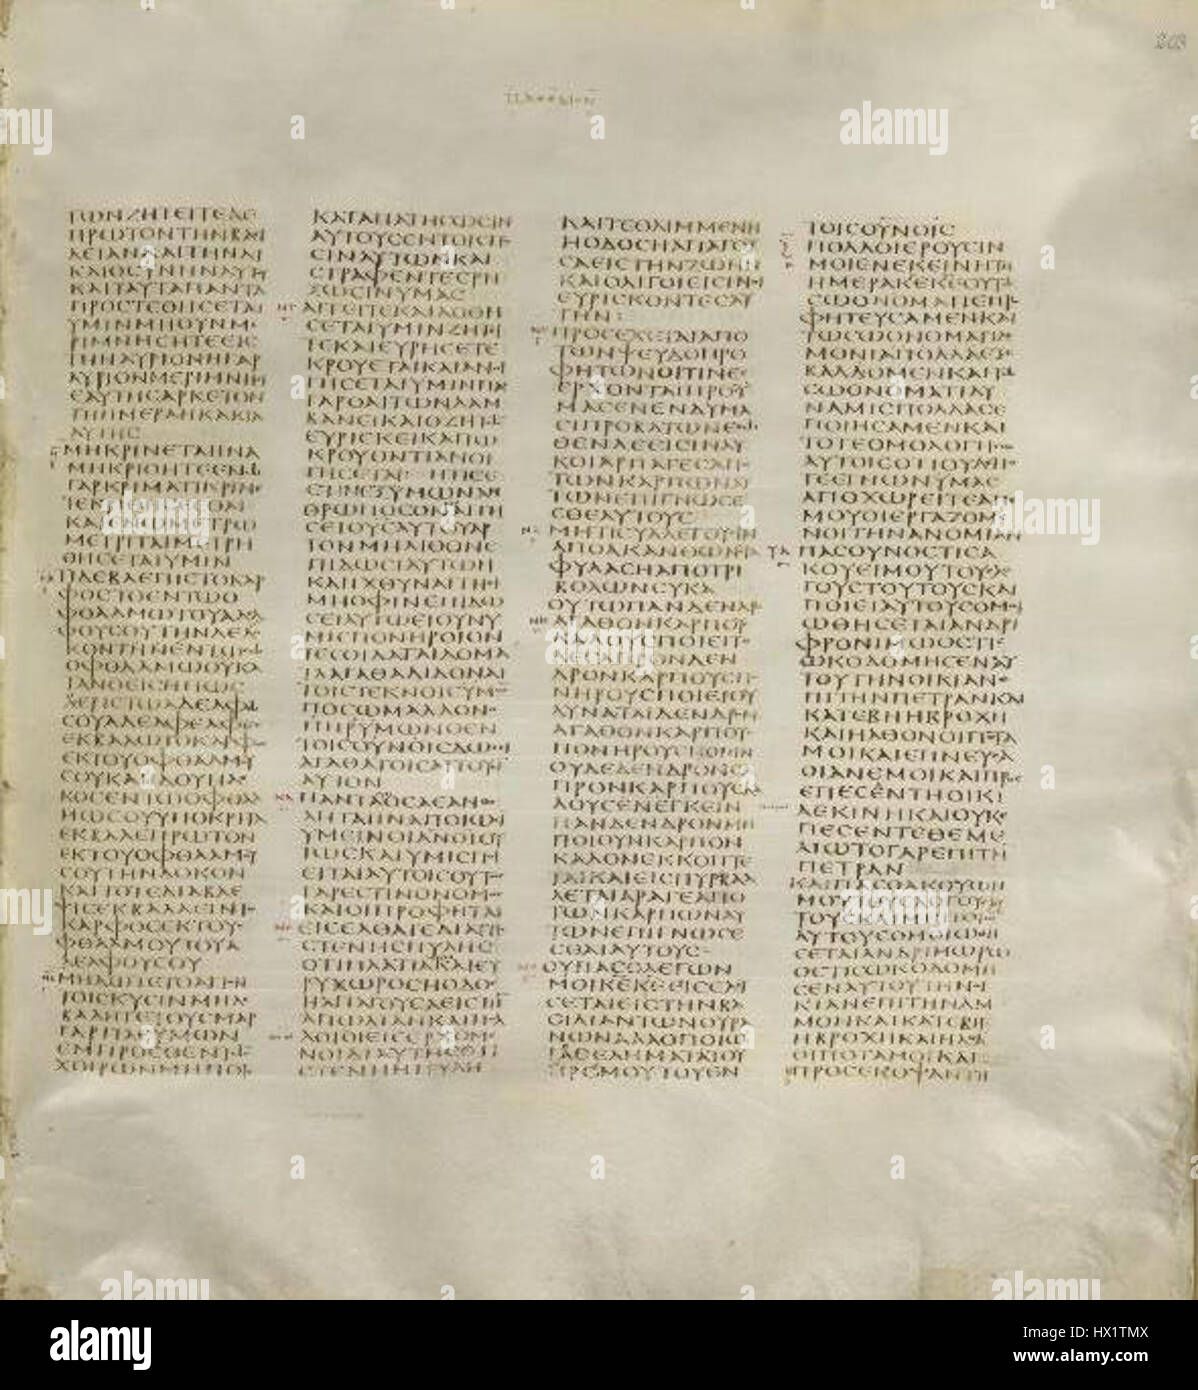 ΤΩΝΖΗΤΕΙΤΕΔΕ
ΠΡΩΤΟΝΤΗΝΒΑϹΙ
ΛΕΙΑΝΚΑΙΤΗΝΔΙ
ΚΑΙΟϹΥΝΗΝΑΥΤΥ
ΚΑΙΤΑΥΤΑΠΑΝΤΑ
ΠΡΟϹΤΕΘΗϹΕΤΑΙ
ΥΜΙΝΜΗΟΥΝΜΕ
ΡΙΜΝΗϹΗΤΕΕΙϹ
ΤΗΝΑΥΡΙΟΝΗΓΑΡ
ΑΥΡΙΟΝΜΕΡΙΜΝΗ
ΕΑΥΤΗϹΑΡΚΕΤΟΝ
ΤΗΗΜΕΡΑΗΚΑΚΙΑ
ΑΥΤΗϹ
ΜΗΚΡΙΝΕΤΑΙΙΝΑ
ΜΗΚΡΙΘΗΤΕΕΝΩ
ΓΑΡΚΡΙΜΑΤΙΚΡΙΝΕ
ΚΑΙΕΝΩΜΕΤΡΩ
ΜΕΤΡΙΤΑΙΜΕΤΡΗ
ΘΗϹΕΤΑΙΥΜΙΝ
ΤΙΔΕΒΛΕΠΙϹΤΟΚΑΡ
ΦΟϹΤΟΕΝΤΩΟ
ΦΘΑΛΜΩΤΟΥΑΔΕΛ
ΦΟΥϹΟΥΤΗΝΔΕΔΟ
ΚΟΝΤΗΝΕΝΤΩϹΩ
ΟΦΘΑΛΜΩΟΥΚΑ
ΤΑΝΟΕΙϹΗΠΩϹ
ΛΕΓΙϹΤΩΑΔΕΛΦΩ
ϹΟΥΑΔΕΛΦΕΑΦΕϹ
ΕΚΒΑΛΩΤΟΚΑΡΦΟϹ
ΕΚΤΟΥΟΦΘΑΛΜΥ
ϹΟΥΚΑΙΙΔΟΥΗΔΟ
ΚΟϹΕΝΤΩΟΦΘΑΛ
ΜΩϹΟΥΥΠΟΚΡΙΤΑ
ΕΚΒΑΛΕΠΡΩΤΟΝ
ΕΚΤΟΥΟΦΘΑΛΜΥ
ϹΟΥΤΗΝΔΟΚΟΝ
ΚΑΙΤΟΤΕΔΙΑΒΛΕ
ΨΙϹΕΚΒΑΛΛΕΙΝΤΟ
ΚΑΡΦΟϹΕΚΤΟΥΟ
ΦΘΑΛΜΟΥΤΟΥΑ
ΔΕΛΦΟΥϹΟΥ
ΜΗΔΩΤΕΤΟΑΓΙΟΝ
ΤΟΙϹΚΥϹΙΝΜΗΔΕ
ΒΑΛΗΤΕΤΟΥϹΜΑΡ
ΓΑΡΙΤΑϹΥΜΩΝ
ΕΜΠΡΟϹΘΕΝΤΩ
ΧΟΙΡΩΝΜΗΠΟΤΕ
ΚΑΤΑΠΑΤΗϹΩϹΙΝ
ΑΥΤΟΥϹΕΝΤΟΙϹΠΟ
ϹΙΝΑΥΤΩΝΚΑΙ
ϹΤΡΑΦΕΝΤΕϹΡΗ
ΞΩϹΙΝΥΜΑϹ
ΑΙΤΕΙΤΕΚΑΙΔΟΘΗ
ϹΕΤΑΙΥΜΙΝΖΗΤΙ
ΤΕΚΑΙΕΥΡΗϹΕΤΕ
ΚΡΟΥΕΤΑΙΚΑΙΑΝΥ
ΓΗϹΕΤΑΙΥΜΙΝΠΑϹ
ΓΑΡΟΑΙΤΩΝΛΑΜ
ΒΑΝΕΙΚΑΙΟΖΗΤΩ
ΕΥΡΙϹΚΕΙΚΑΙΤΩ
ΚΡΟΥΟΝΤΙΑΝΟΙ
ΓΗϹΕΤΑΙΗΤΙϹΕ
ϹΤΙΝΕΞΥΜΩΝΑΝ
ΘΡΩΠΟϹΟΝΑΙΤΗ
ϹΕΙΟΥΙΟϹΑΥΤΟΥΑΡ
ΤΟΝΜΗΛΙΘΟΝΕ
ΠΙΔΩϹΙΑΥΤΩΗ
ΚΑΙΙΧΘΥΝΑΙΤΗϹΙ
ΜΗΟΦΙΝΕΠΙΔΩ
ϹΕΙΑΥΤΩΕΙΟΥΝΥ
ΜΙϹΠΟΝΗΡΟΙΟΝ
ΤΕϹΟΙΔΑΤΑΙΔΟΜΑ
ΤΑΑΓΑΘΑΔΙΔΟΝΑΙ
ΤΟΙϹΤΕΚΝΟΙϹΥΜΩ
ΠΟϹΩΜΑΛΛΟΝΟ
ΠΗΡΥΜΩΝΟΕΝ
ΤΟΙϹΟΥΝΟΙϹΔΩϹΙ
ΑΓΑΘΑΤΟΙϹΑΙΤΟΥϹΙ
ΑΥΤΟΝ
ΠΑΝΤΑΟϹΑΕΑΝΘΕ
ΛΗΤΑΙΙΝΑΠΟΙΩϹΙ
ΥΜΕΙΝΟΙΑΝΟΙΟΥ
ΤΩϹΚΑΙΥΜΙϹΠΟΙ
ΕΙΤΑΙΑΥΤΟΙϹΟΥΤΟϹ
ΓΑΡΕϹΤΙΝΟΝΟΜΟϹ
ΚΑΙΟΙΠΡΟΦΗΤΑΙ
ΕΙϹΕΛΘΑΤΕΔΙΑΤΗϹ
ϹΤΕΝΗϹΠΥΛΗϹ
ΟΤΙΠΛΑΤΙΑΚΑΙΕΥ
ΡΥΧΩΡΟϹΗΟΔΟϹ
ΗΑΠΑΓΟΥϹΑΕΙϹΤΗ
ΑΠΩΛΙΑΝΚΑΙΠΟΛ
ΛΟΙΟΙΕΙϹΕΡΧΟΜΕ
ΝΟΙΔΙΑΥΤΗϹΟΤΙ
ϹΤΕΝΗΗΠΥΛΗ
ΚΑΙΤΕΘΛΙΜΜΕΝΗ
ΗΟΔΟϹΗΑΠΑΓΟΥ
ϹΑΕΙϹΤΗΝΖΩΗΝ
ΚΑΙΟΛΙΓΟΙΕΙϹΙΝΟΙ
ΕΥΡΙϹΚΟΝΤΕϹΑΥ
ΤΗΝ
ΠΡΟϹΕΧΕΤΑΙΑΠΟ
ΤΩΝΨΕΥΔΟΠΡΟ
ΦΗΤΩΝΟΙΤΙΝΕϹ
ΕΡΧΟΝΤΑΙΠΡΟϹΥ
ΜΑϹΕΝΕΝΔΥΜΑ
ϹΙΠΡΟΒΑΤΩΝΕϹΩ
ΘΕΝΔΕΕΙϹΙΝΛΥ
ΚΟΙΑΡΠΑΓΕϹΑΠΟ
ΤΩΝΚΑΡΠΩΝΑΥ
ΤΩΝΕΠΙΓΝΩϹΕ
ϹΘΕΑΥΤΟΥϹ
ΜΗΤΙϹΥΛΛΕΓΟΥϹΙΝ
ΑΠΟΑΚΑΝΘΩΝϹΤΑ
ΦΥΛΑϹΗΑΠΟΤΡΙ
ΒΟΛΩΝϹΥΚΑ
ΟΥΤΩΠΑΝΔΕΝΔΡΟ
ΑΓΑΘΟΝΚΑΡΠΟΥϹ
ΚΑΛΟΥϹΠΟΙΕΙΤΟ
ΔΕϹΑΠΡΟΝΔΕΝ
ΔΡΟΝΚΑΡΠΟΥϹΠΟ
ΝΗΡΟΥϹΠΟΙΕΙΟΥ
ΔΥΝΑΤΑΙΔΕΝΔΡΟ
ΑΓΑΘΟΝΚΑΡΠΟΥϹ
ΠΟΝΗΡΟΥϹΠΟΙΕΙΝ
ΟΥΔΕΔΕΝΔΡΟΝϹΑ
ΠΡΟΝΚΑΡΠΟΥϹΚΑ
ΛΟΥϹΕΝΕΓΚΕΙΝ
ΠΑΝΔΕΝΔΡΟΝΜΗ
ΠΟΙΟΥΝΚΑΡΠΟΝ
ΚΑΛΟΝΕΚΚΟΠΤΕ
ΤΑΙΚΑΙΕΙϹΠΥΡΒΑΛ
ΛΕΤΑΙΑΡΑΓΕΑΠΟ
ΤΩΝΚΑΡΠΩΝΑΥ
ΤΩΝΕΠΙΓΝΩϹΕ
ϹΘΑΙΑΥΤΟΥϹ
ΟΥΠΑϹΟΛΕΓΩΝ
ΜΟΙΚΕΚΕΕΙϹΕΛΕΥ
ϹΕΤΑΙΕΙϹΤΗΝΒΑ
ϹΙΛΙΑΝΤΩΝΟΥΡΑ
ΝΩΝΑΛΛΟΠΟΙΩ
ΤΑΘΕΛΗΜΑΤΑΤΟΥ
ΠΡϹΜΟΥΤΟΥΕΝ
ΤΟΙϹΟΥΝΟΙϹ
ΠΟΛΛΟΙΕΡΟΥϹΙΝ
ΜΟΙΕΝΕΚΕΙΝΗΤΗ
ΗΜΕΡΑΚΕΚΕΟΥΤΩ
ϹΩΟΝΟΜΑΤΙΕΠΡΟ
ΦΗΤΕΥϹΑΜΕΝΚΑΙ
ΤΩϹΩΟΝΟΜΑΤΙΔΕ
ΜΟΝΙΑΠΟΛΛΑΕΞΕ
ΒΑΛΛΟΜΕΝΚΑΙΤΩ
ϹΩΟΝΟΜΑΤΙΔΥ
ΝΑΜΙϹΠΟΛΛΑϹΕ
ΠΟΙΗϹΑΜΕΝΚΑΙ
ΤΟΤΕΟΜΟΛΟΓΗϹΩ
ΑΥΤΟΙϹΟΤΙΟΥΔΕΠΟ
ΤΕΕΓΝΩΝΥΜΑϹ
ΑΠΟΧΩΡΕΙΤΕΑΠ
ΕΜΟΥΟΙΕΡΓΑΖΟΜΕ
ΝΟΙΤΗΝΑΝΟΜΙΑΝ
ΠΑϹΟΥΝΟϹΤΙϹΑ
ΚΟΥΕΙΜΟΥΤΟΥϹΛΟ
ΓΟΥϹΤΟΥΤΟΥϹΚΑΙ
ΠΟΙΕΙΑΥΤΟΥϹΟΜΟΙ
ΩΘΗϹΕΤΑΙΑΝΔΡΙ
ΦΡΟΝΙΜΩΟϹΤΙϹ
ΩΚΟΔΟΜΗϹΕΝΑΥ
ΤΟΥΤΗΝΟΙΚΙΑΝΕ
ΠΙΤΗΝΠΕΤΡΑΝΚΑΙ
ΚΑΤΕΒΗΗΒΡΟΧΗ
ΚΑΙΗΛΘΟΝΟΙΠΟΤΑ
ΜΟΙΚΑΙΕΠΝΕΥϹΑ
ΟΙΑΝΕΜΟΙΚΑΙΠΡΟϹ
ΕΠΕϹΕΝΤΗΟΙΚΙ
ΑΕΚΙΝΗΚΑΙΟΥΚΕ
ΠΕϹΕΝΤΕΘΕΜΕ
ΛΙΩΤΟΓΑΡΕΠΙΤΗ
ΠΕΤΡΑΝ
ΚΑΙΠΑϹΟΑΚΟΥΩΝ
ΑΥΤΟΥϹΟΜΟΙΩΘΗ
ϹΕΤΑΙΑΝΔΡΙΜΩΡΩ
ΟϹΤΙϹΩΚΟΔΟΜΗ
ϹΕΝΑΥΤΟΥΤΗΝΟΙ
ΚΙΑΝΕΠΙΤΗΝΑΜ
ΜΟΝΚΑΙΚΑΤΕΒΗ
ΗΒΡΟΧΗΚΑΙΗΛΘΟ
ΟΙΠΟΤΑΜΟΙΚΑΙ
ΠΡΟϹΕΚΟΨΑΝΤΗ
alamy
Image ID: HX1TMX
www.alamy.com